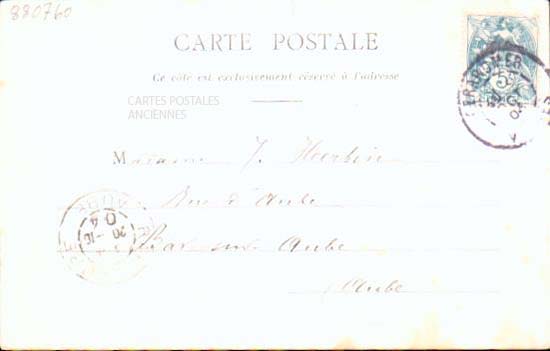 880760
CARTE POSTALE
Ce côté est exclusivement réservé à l'adresse
CARTES POSTALES
ANCIENNES
Madame J. Hoerbin
Rue d'Aube
Bar sur Aube
Aube
GERARDMER
5
04
20 -10